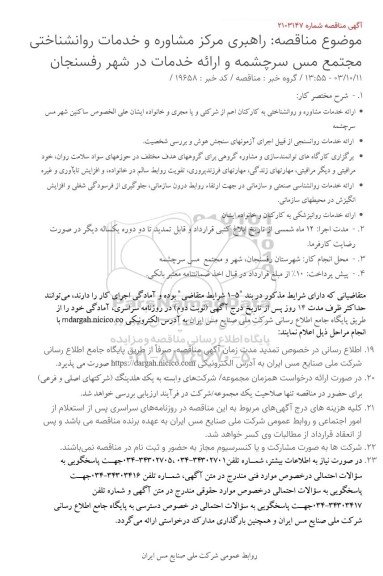 آگهی مناقصه شماره ۲۱۰۳۱۴۷
موضوع مناقصه: راهبری مرکز مشاوره و خدمات روانشناختی
مجتمع مس سرچشمه و ارائه خدمات در شهر رفسنجان
۰۳/۱۰/۱۱ - ۱۳:۵۵ / گروه خبر : مناقصه / کد خبر : ۱۹۶۵۸ /
۱. - شرح مختصر کار:
ارائه خدمات مشاوره و روانشناختی به کارکنان اعم از شرکتی و یا مجری و خانواده ایشان علی الخصوص ساکنین شهر مس
سرچشمه
ارائه خدمات روانسنجی از قبیل اجرای آزمونهای سنجش هوش و بررسی شخصیت.
برگزاری کارگاه های توانمندسازی و مشاوره گروهی برای گروههای هدف مختلف در حوزههای سواد سلامت روان، خود
مراقبتی و دیگر مراقبتی، مهارتهای زندگی، مهارتهای فرزندپروری، تقویت روابط سالم در خانواده، و افزایش تابآوری و غیره
ارائه خدمات روانشناسی صنعتی و سازمانی در جهت ارتقاء روابط درون سازمانی، جلوگیری از فرسودگی شغلی و افزایش
انگیزش در محیطهای سازمانی.
ارائه خدمات روانپزشکی به کارکنان و خانواده ایشان
۲. - مدت اجرا: ۱۲ ماه شمسی از تاریخ ابلاغ کتبی قرارداد و قابل تمدید تا دو دوره یکساله دیگر در صورت
رضایت کارفرما.
۳. - محل انجام کار: شهرستان رفسنجان، شهر و مجتمع مس سرچشمه
۴. - پیش پرداخت: ۱۰٪ از مبلغ قرارداد در قبال اخذ ضمانتنامه معتبر بانکی.
متقاضیانی که دارای شرایط مذکور در بند "۵-۱ شرایط متقاضی" بوده و آمادگی اجرای کار را دارند، می‌توانند
حداکثر ظرف مدت ۱۴ روز پس از تاریخ درج آگهی (نوبت دوم) در روزنامه سراسری، آمادگی خود را از
طریق پایگاه جامع اطلاع رسانی شرکت ملی صنایع مس ایران به آدرس الکترونیکی mdargah.nicico.co با
انجام مراحل ذیل اعلام نمایند:
۱۹. اطلاع رسانی در خصوص تمدید مدت زمان آگهی مناقصه، صرفاً از طریق پایگاه جامع اطلاع رسانی
شرکت ملی صنایع مس ایران به آدرس الکترونیکی https://dargah.nicico.com صورت می پذیرد.
۲۰. در صورت ارائه درخواست همزمان مجموعه/ شرکت‌های وابسته به یک هلدینگ (شرکتهای اصلی و فرعی)
برای حضور در مناقصه تنها صلاحیت یک مجموعه/شرکت در فرآیند ارزیابی بررسی خواهد شد.
۲۱. کلیه هزینه های درج آگهی‌های مربوط به این مناقصه در روزنامه‌های سراسری پس از استعلام از
امور اجتماعی و روابط عمومی شرکت ملی صنایع مس ایران به عهده برنده مناقصه می باشد و پس
از انعقاد قرارداد از مطالبات وی کسر خواهد شد.
۲۲. شرکت ها به صورت مشارکت و یا کنسرسیوم مجاز به حضور و ثبت نام در مناقصه نمی‌باشند.
۲۳. در صورت نیاز به اطلاعات بیشتر، شماره تلفن ۳۴۳۰۲۷۰۱-۰۳۴، ۳۴۳۰۲۷۰۵-۰۳۴ جهت پاسخگویی به
سؤالات احتمالی درخصوص موارد فنی مندرج در متن آگهی، شماره تلفن ۳۴۳۰۳۴۱۶-۰۳۴ جهت
پاسخگویی به سؤالات احتمالی درخصوص موارد حقوقی مندرج در متن آگهی و شماره تلفن
۳۴۳۰۳۴۱۷-۰۳۴ جهت پاسخگویی به سؤالات احتمالی در خصوص دسترسی به پایگاه جامع اطلاع رسانی
شرکت ملی صنایع مس ایران و همچنین بارگذاری مدارک درخواستی ارائه می‌گردد.
روابط عمومی شرکت ملی صنایع مس ایران